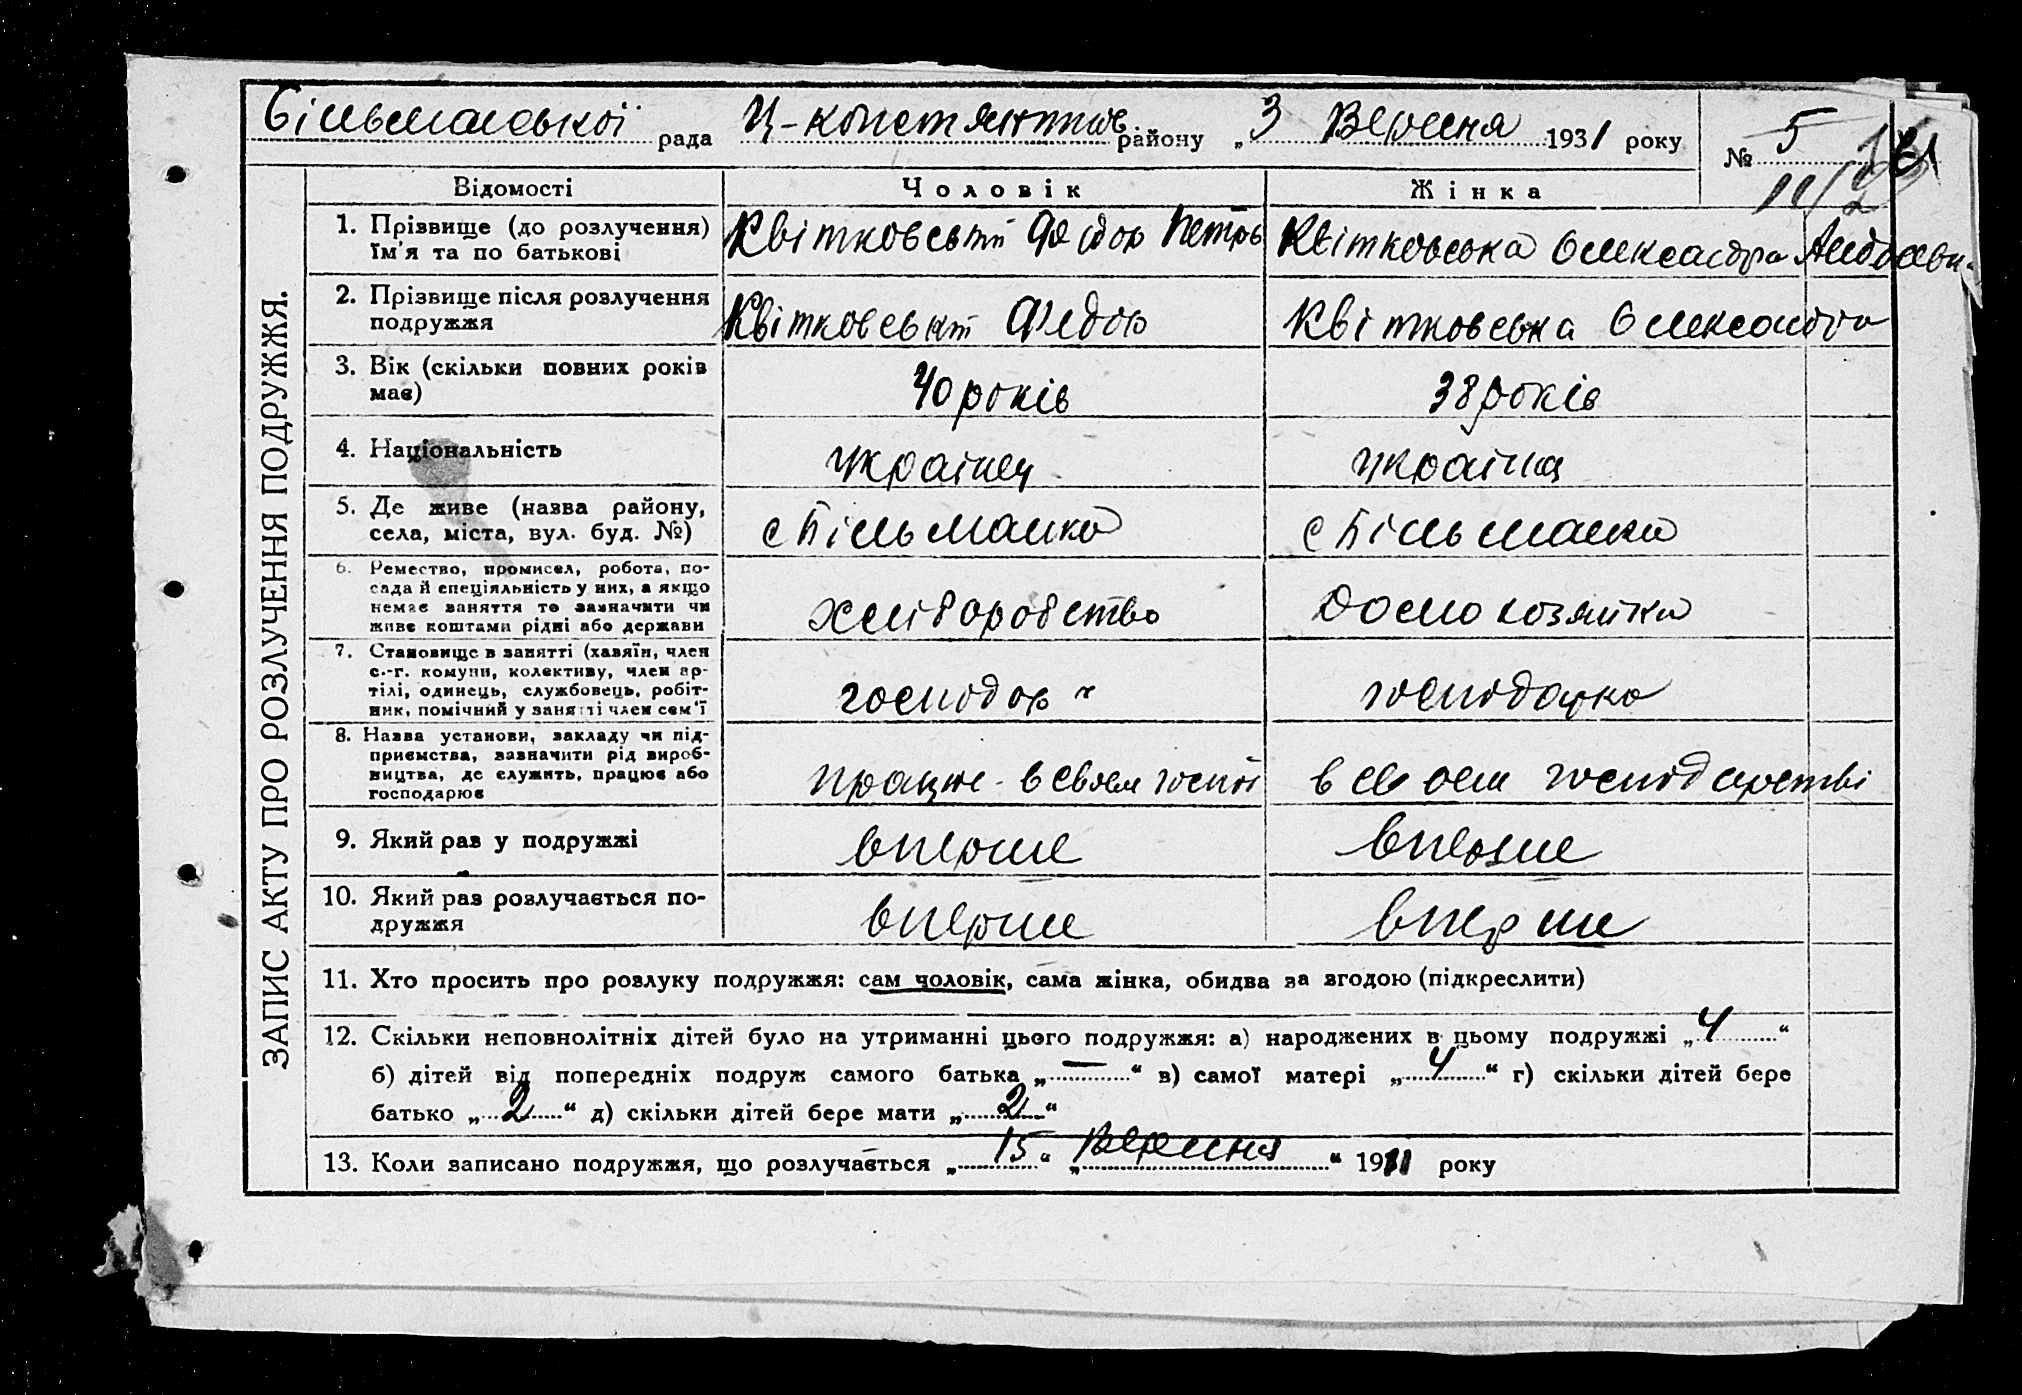 Більманської рада Ц-констянтинов. району „3 Вересня 1931 року № 5
11/2
ЗАПИС АКТУ ПРО РОЗЛУЧЕННЯ ПОДРУЖЖЯ.
Відомості Чоловік Жінка
1. Прізвище (до розлучення) Квітковський Федор Петров Квітковська Олександра Андреевн.
їм'я та по батькові
2. Прізвище після розлучення Квітковський Федор Квітковська Олександра
подружжя
3. Вік (скільки повних років 40 років 38 років
має)
4. Національність українец українца
5. Де живе (назва району, с Більманка с Більманка
села, міста, вул. буд. №)
6. Ремество, промисел, робота, по-
сада й спеціяльність у них, а якщо хліборобство домохозяйка
немає заняття то зазначити чи
живе коштами рідні або держави
7. Становище в занятті (хазяїн, член
с.-г. комуни, колективу, член ар- господар господарка
тілі, одинець, службовець, робіт-
ник, помічний у занятті член сем'ї
8. Назва установи, закладу чи під-
приємства, зазначити рід вироб- працює - в своем госпо в своем господарстві
ництва, де служить, працює або
господарює
9. Який раз у подружжі вперше вперше
10. Який раз розлучається по- вперше вперше
дружжя
11. Хто просить про розлуку подружжя: сам чоловік, сама жінка, обидва за згодою (підкреслити)
12. Скільки неповнолітніх дітей було на утриманні цього подружжя: а) народжених в цьому подружжі „4“
б) дітей від попередніх подруж самого батька „—“ в) самої матері „4“ г) скільки дітей бере
батько „2“ д) скільки дітей бере мати „2“
13. Коли записано подружжя, що розлучається „15“ „Вересня“ 1911 року